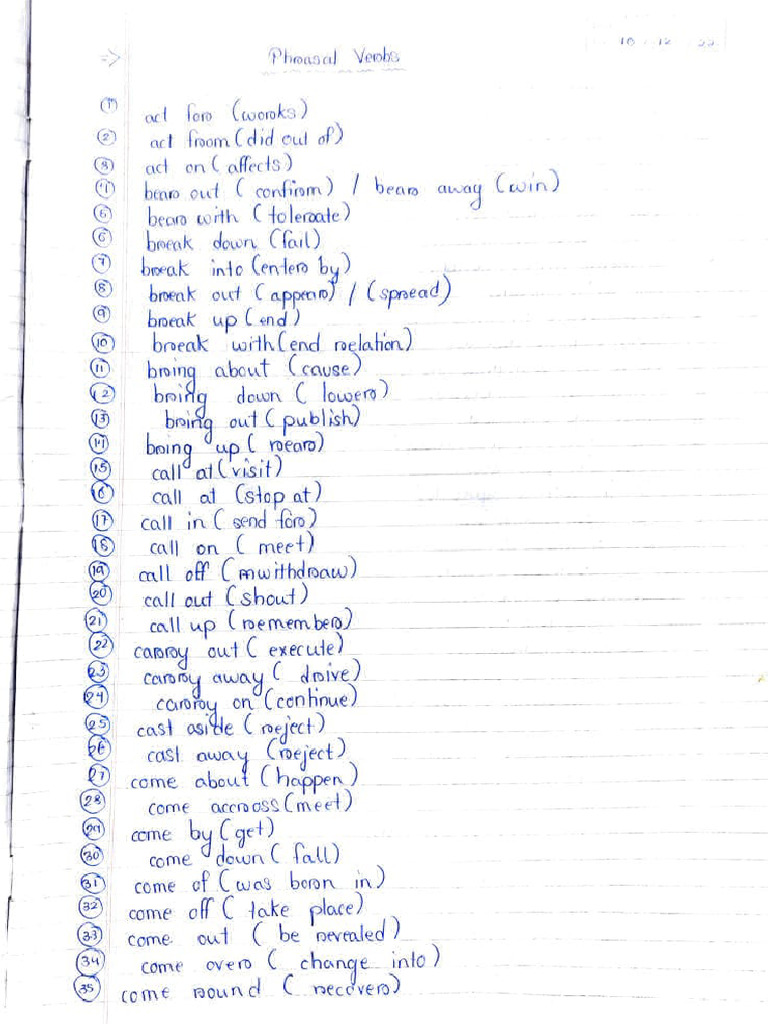 10 12 22
=> Phrasal Verbs
① act for (works)
② act from (did out of)
③ act on (affects)
④ bear out (confirm) / bear away (win)
⑤ bear with (tolerate)
⑥ break down (fail)
⑦ break into (enter by)
⑧ break out (appear) / (spread)
⑨ break up (end)
⑩ break with (end relation)
⑪ bring about (cause)
⑫ bring down (lower)
⑬ bring out (publish)
⑭ bring up (rear)
⑮ call at (visit)
⑯ call at (stop at)
⑰ call in (send for)
⑱ call on (meet)
⑲ call off (withdraw)
⑳ call out (shout)
㉑ call up (remember)
㉒ carry out (execute)
㉓ carry away (drive)
㉔ carry on (continue)
㉕ cast aside (reject)
㉖ cast away (reject)
㉗ come about (happen)
㉘ come accross (meet)
㉙ come by (get)
㉚ come down (fall)
㉛ come of (was born in)
㉜ come off (take place)
㉝ come out (be revealed)
㉞ come over (change into)
㉟ come round (recover)